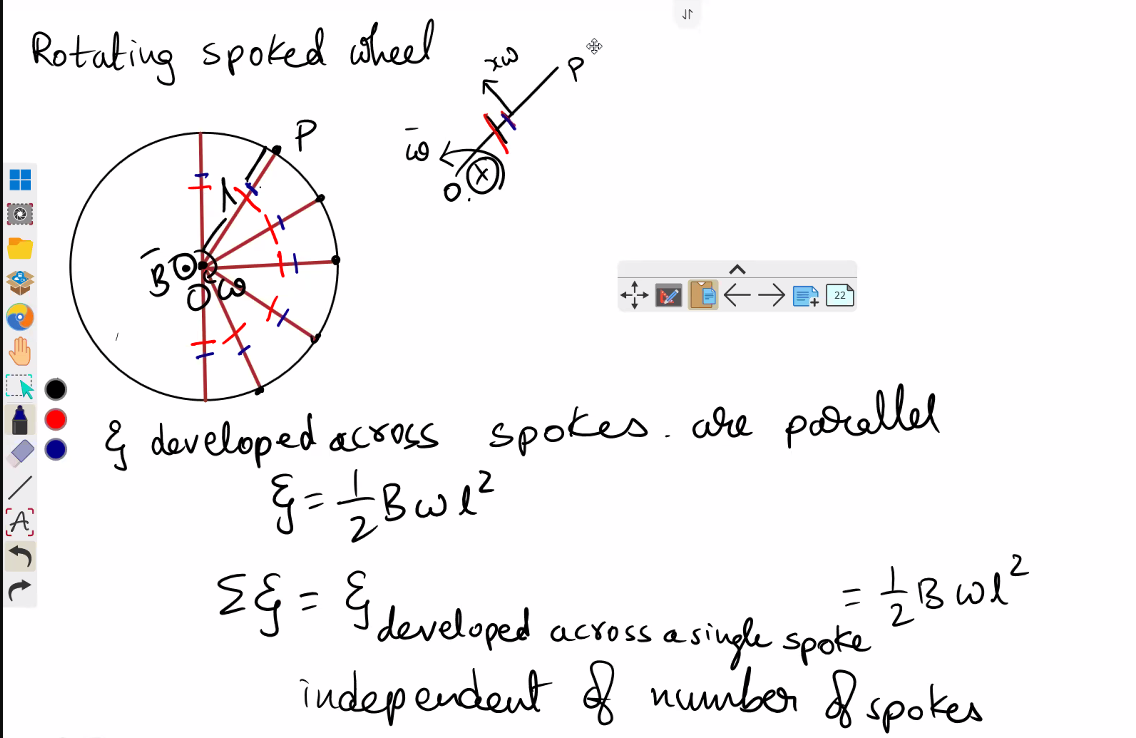 Rotating spoked wheel
xω
P
ω̄
O.
P
l
B̄
O
ω
ξ developed across spokes. are parallel
ξ = 1/2 B ω l²
Σξ = ξ developed across a single spoke = 1/2 B ω l²
independent of number of spokes
22
A